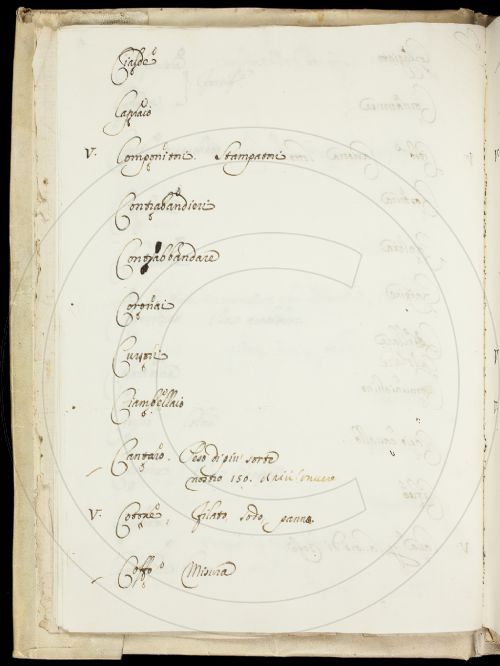 Cialde
Cappaio
V. Componitori. Stampatori
Contrabandieri
Contrabbandare
Coronai
Ciambellaio
Cantaro. Peso di più sorte
nostro 150.
V. Cotone, filato, sodo, panno.
Coffo Misura